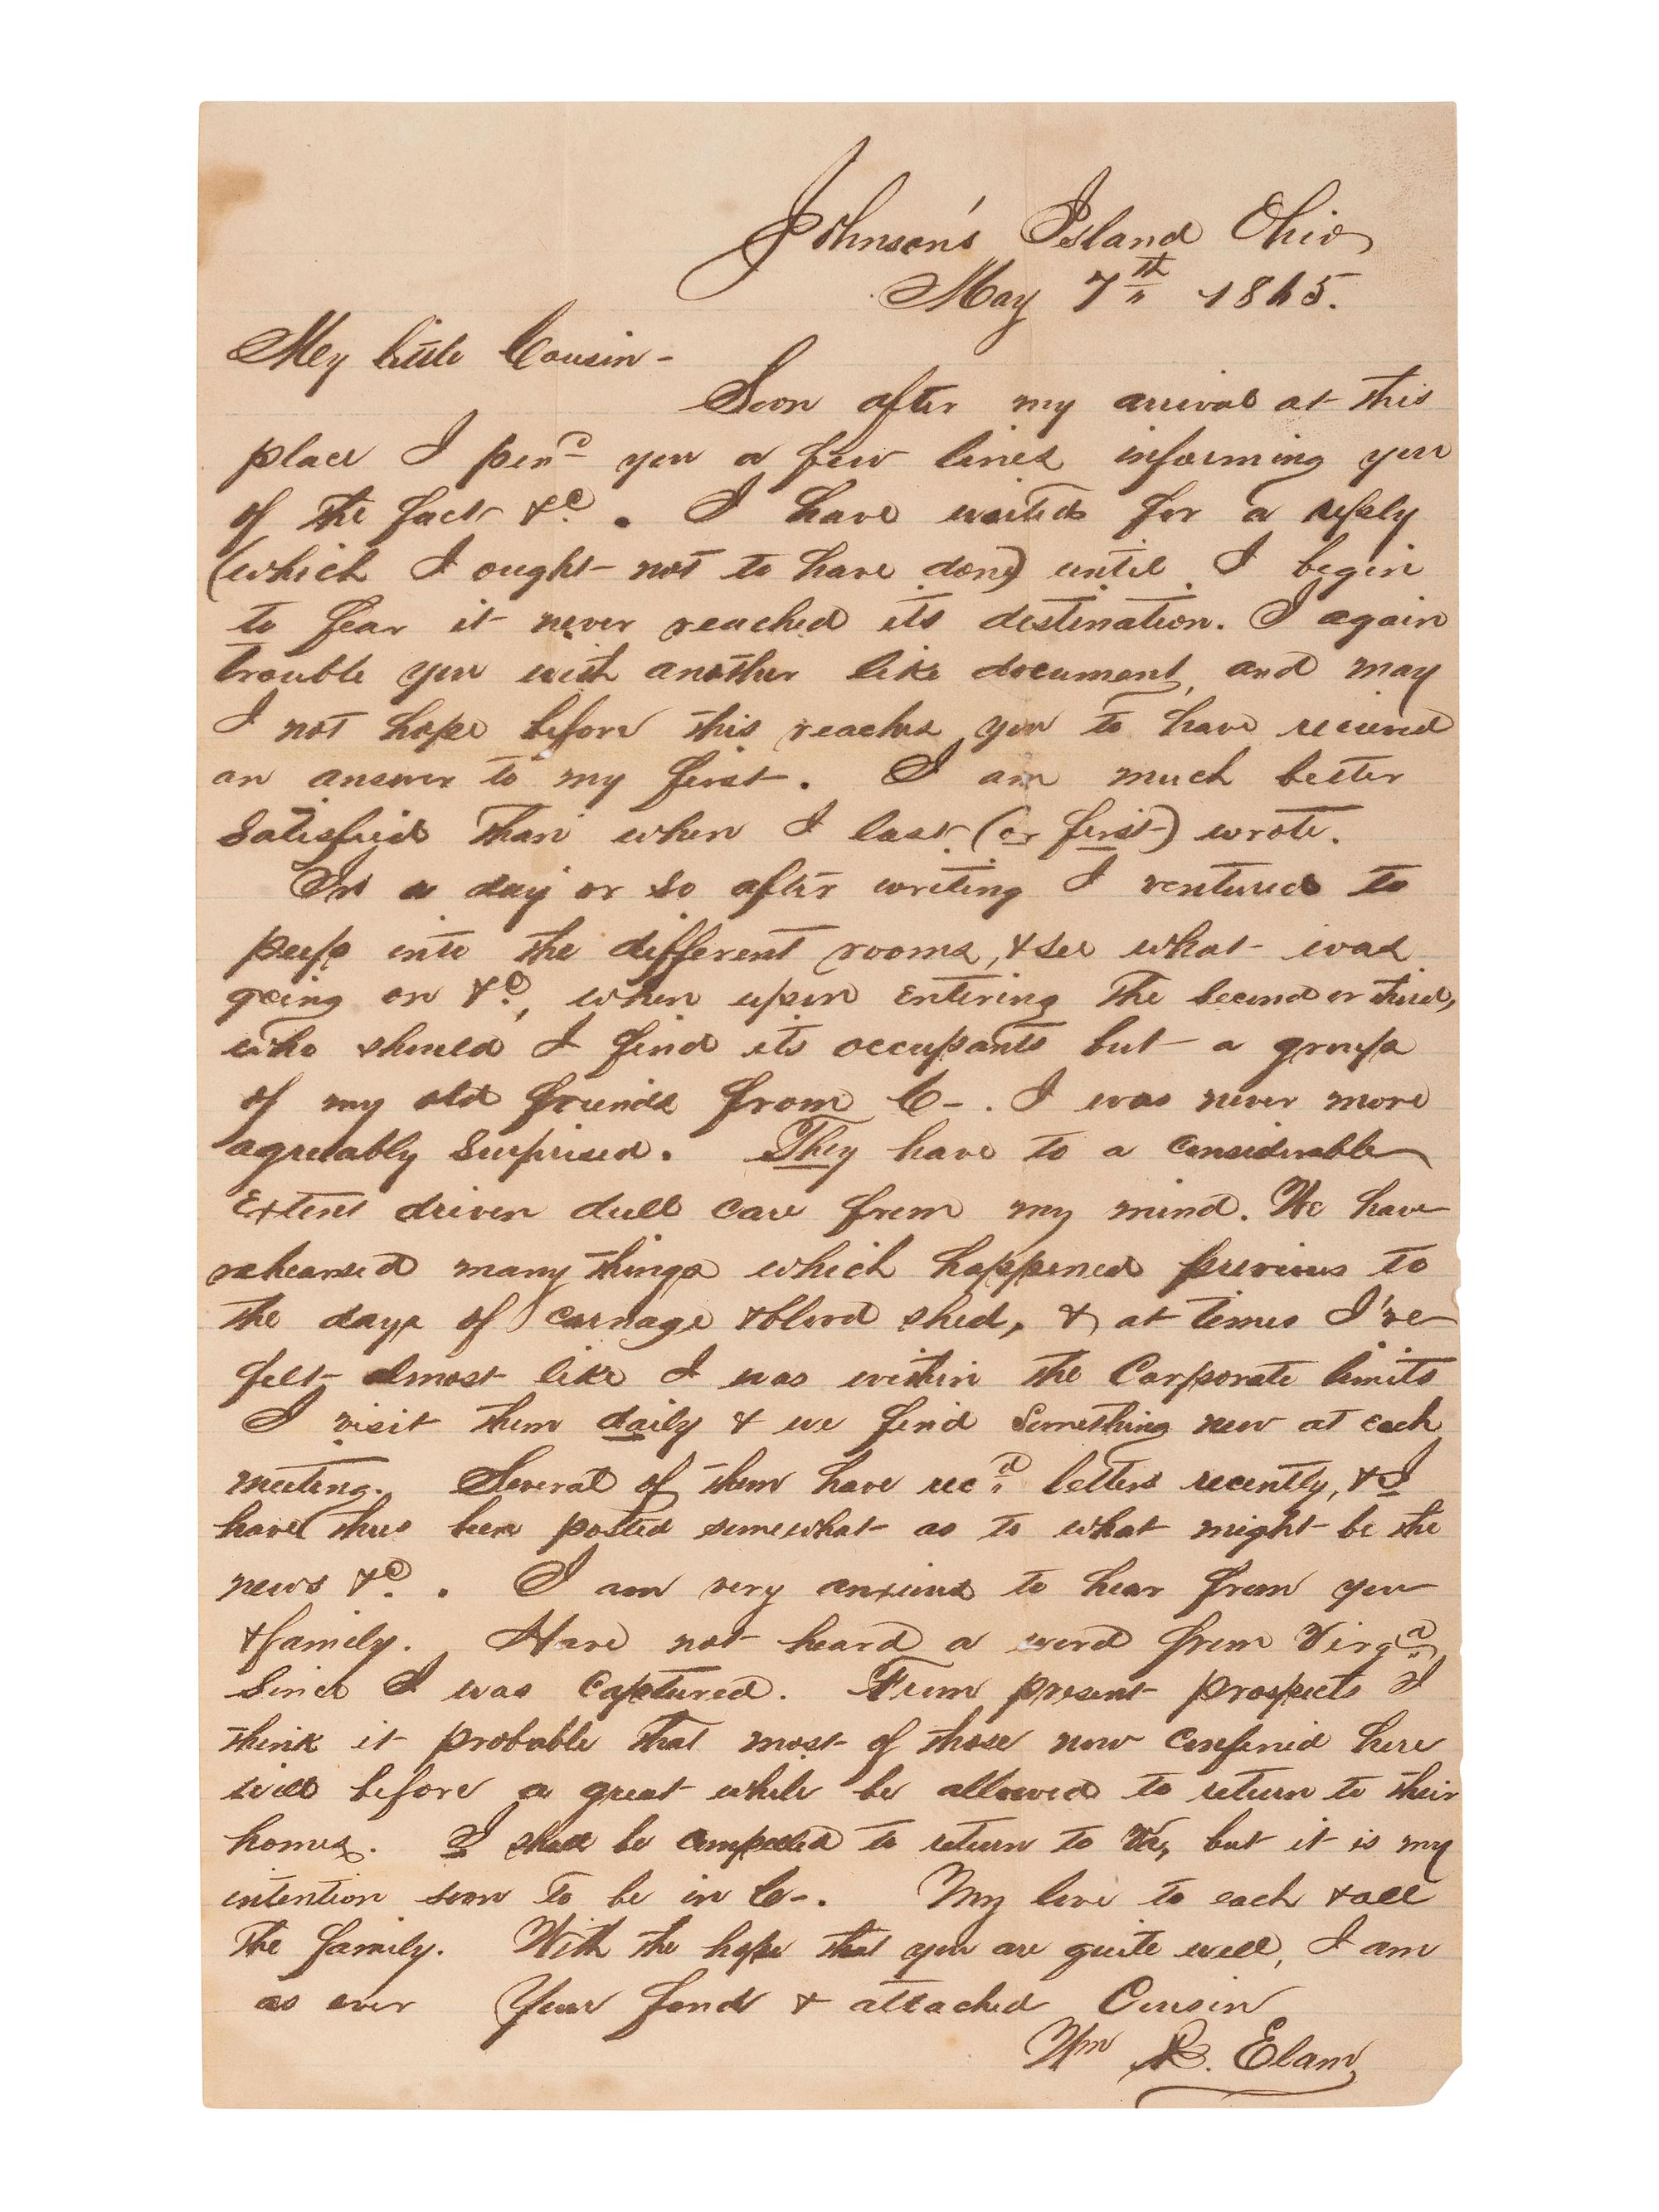 Johnson's Island Ohio
May 7th 1865.
My little Cousin-
Soon after my arrival at this
place I pend you a few lines informing you
of the fact &c. I have waited for a reply
(which I ought not to have done) until I begin
to fear it never reached its destination. I again
trouble you with another like document, and may
I not hope before this reaches you to have received
an answer to my first. I am much better
satisfied than when I last (or first) wrote.
In a day or so after writing I ventured to
peep into the different rooms, & see what was
going on &c, when upon entering the second or third,
who should I find its occupants but a group
of my old friends from C-. I was never more
agreeably surprised. They have to a considerable
extent driven dull care from my mind. We have
rehearsed many things which happened previous to
the days of carnage & blood shed, & at times I've
felt almost like I was within the Corporate limits
I visit them daily & we find something new at each
meeting. Several of them have recd letters recently, & I
have thus been posted somewhat as to what might be the
news &c. I am very anxious to hear from you
& family. Have not heard a word from Virga
since I was captured. From present prospects I
think it probable that most of those now confined here
will before a great while be allowed to return to their
homes. I shall be compelled to return to Va, but it is my
intention soon to be in C-. My love to each & all
the family. With the hope that you are quite well, I am
as ever Your fond & attached Cousin
Wm R. Elam